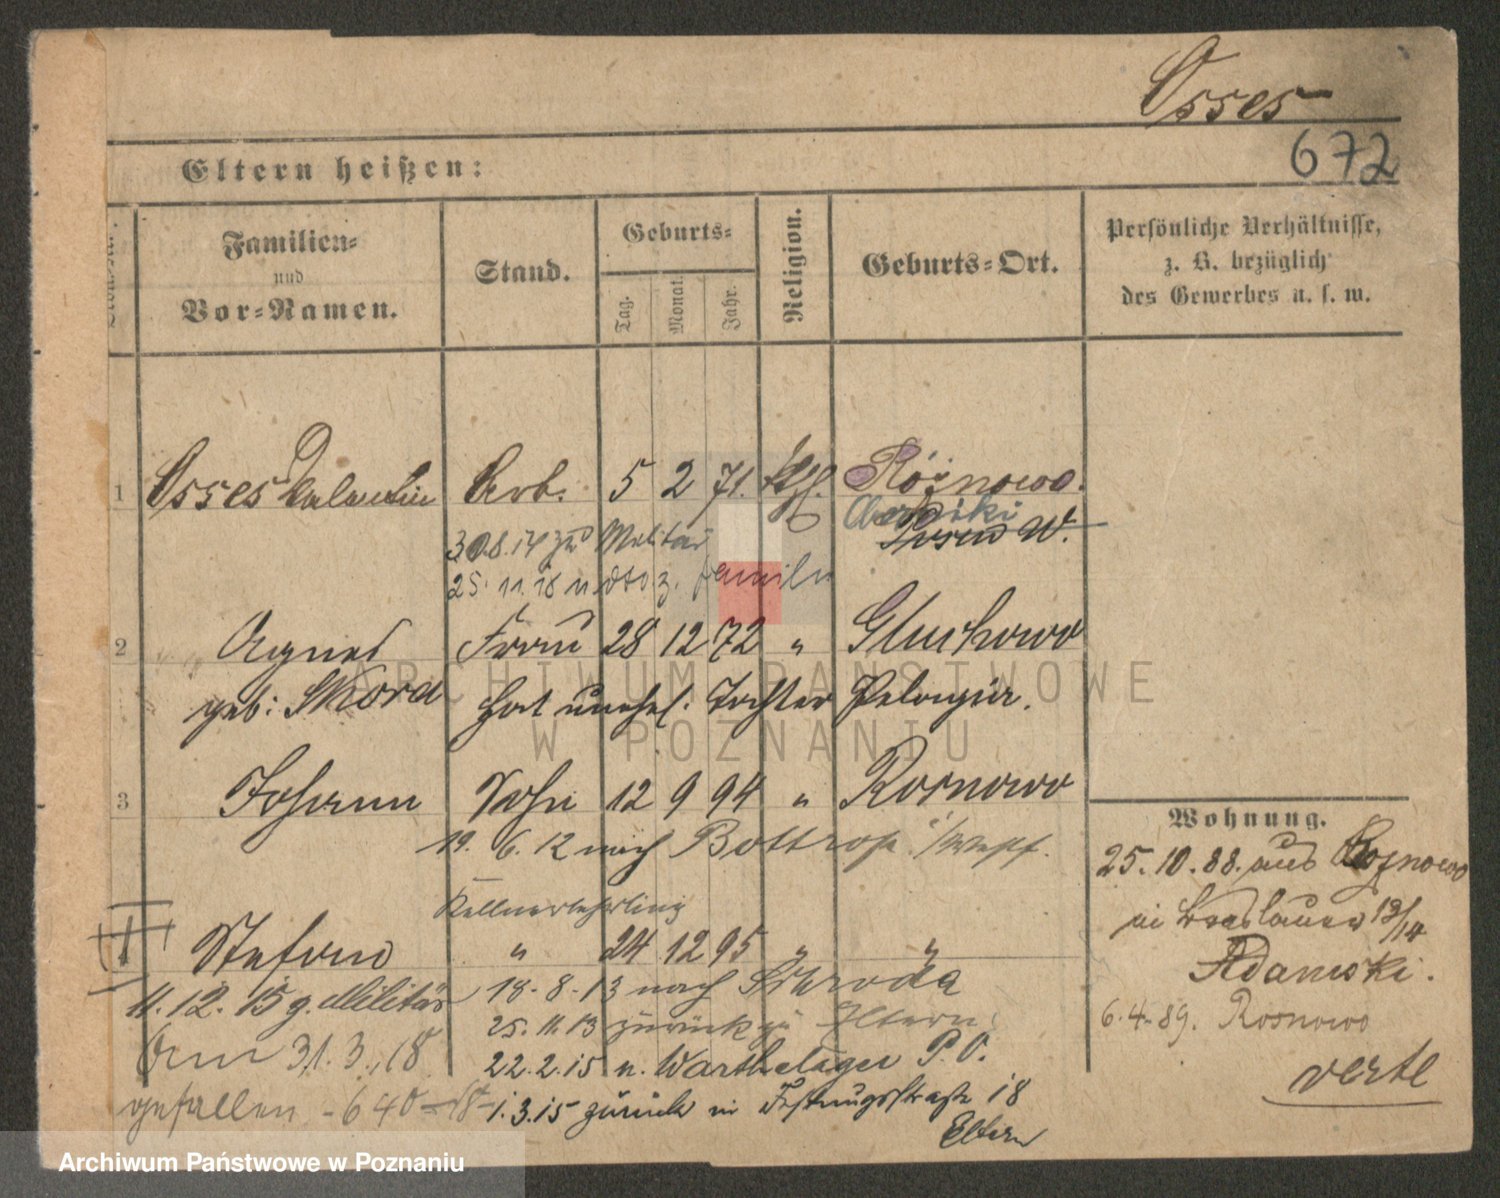 Osses
672
Eltern heißen:
Familien-
und
Vor-Namen.
Stand.
Geburts-
Tag.
Monat.
Jahr.
Religion.
Geburts-Ort.
Persönliche Verhältnisse,
z. B. bezüglich
des Gewerbes u. s. w.
1 Osses Valentin Arb. 5 2 71. kth. Rożnowo.
Oborniki
Posen W.
30.8.14 zum Militär
25.11.18 z. Familie
2 Agnes Frau 28 12 72 " Gluchowo
geb: Skora hat unehel. Tochter Pelagia.
3 Johann Sohn 12 9 94 " Rosnowo
19. 6. 12 nach Bottrop i/Westf.
Kellnerlehrling
Stefan " 24 12 95 " "
11.12.15 z. Militär
18-8-13 nach Schroda
25.11.13 zurück zu Eltern
Am 31.3.18
22.2.15 n. Warthelager P.O.
gefallen - 640-18-
1.3.15 zurück in Festungsstraße 18
Eltern
Wohnung.
25.10.88. aus Roznowo
in Breslauer 13/14
Adamski.
6.4.89. Rosnowo
verte
ARCHIWUM PAŃSTWOWE
W POZNANIU
Archiwum Państwowe w Poznaniu